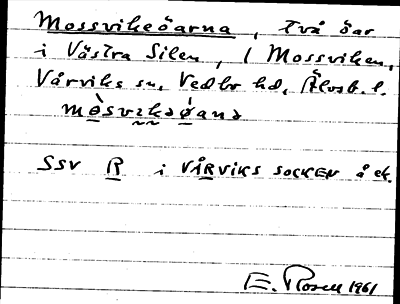 Mossvikeöarna, två öar
i Västra Silen, i Mossviken,
Vårviks sn, Vedbo hd, Älvsb. l.
mòsvikəöánə
SSV R i VÅRVIKS SOCKEN å ek.
E. Rosell 1961